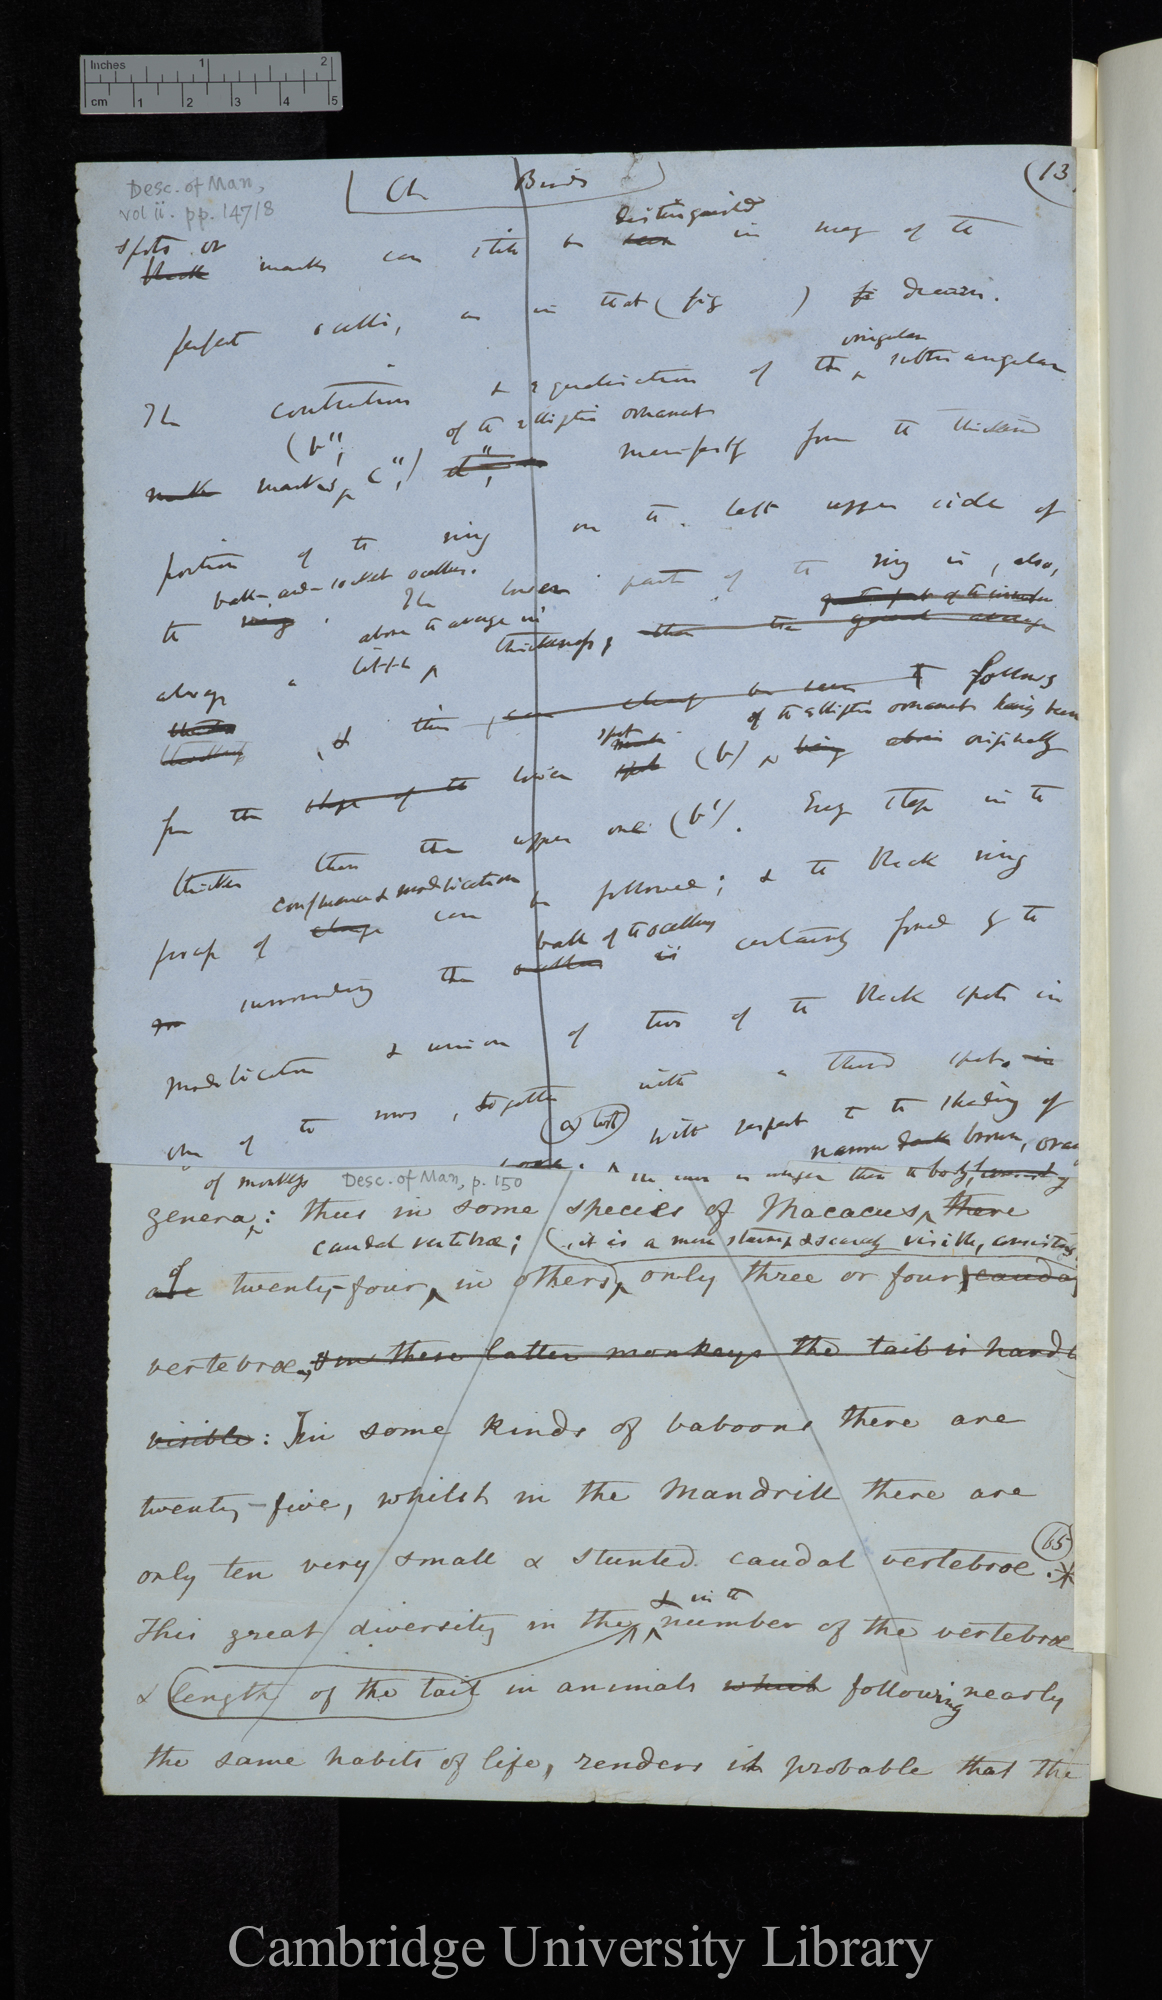 Inches 1 2
cm 1 2 3 4 5
Desc. of Man,
vol ii. pp. 147/8
Ch Birds
(13
distinguished
spots or
marks can still be seen in many of the
perfect ocelli, as in that (fig ) drawn.
irregular
The contraction & of the subtriangular
of the elliptic ornaments
(b", c")
marks, d", manifestly from the thickened
portion of the ring on the left upper side of
ball-and-socket ocellus.
the ring. The lower part of the ring is, also,
above the average in
always a little thickness, than the general average
& this can clearly be seen follows
of the elliptic ornaments having been
spot
from the shape of the lower (b) being originally
thicker than the upper one (b'). Every step in the
confluence & modification
process of change can be followed; & the black ring
ball of the ocellus
surrounding the ocellus is certainly formed by the
modification & union of two of the black spots in
one of the rows, together with a third spot. in
(a) with respect to the shading of
narrow dark brown,
of monkeys
Desc. of Man, p. 150
genera: thus in some species of Macacus, there
caudal vertebræ; (, it is a mere stump, & scarcely visible, consisting
of
are twenty-four, in others, only three or four cauda
vertebræ, & in these latter monkeys the tail is hardly
visible: In some kinds of baboons there are
twenty-five, whilst in the Mandrill there are
65
only ten very small & stunted caudal vertebræ.*
& in the
This great diversity in the number of the vertebræ
& length of the tail in animals which following nearly
the same habits of life, renders it probable that the
Cambridge University Library